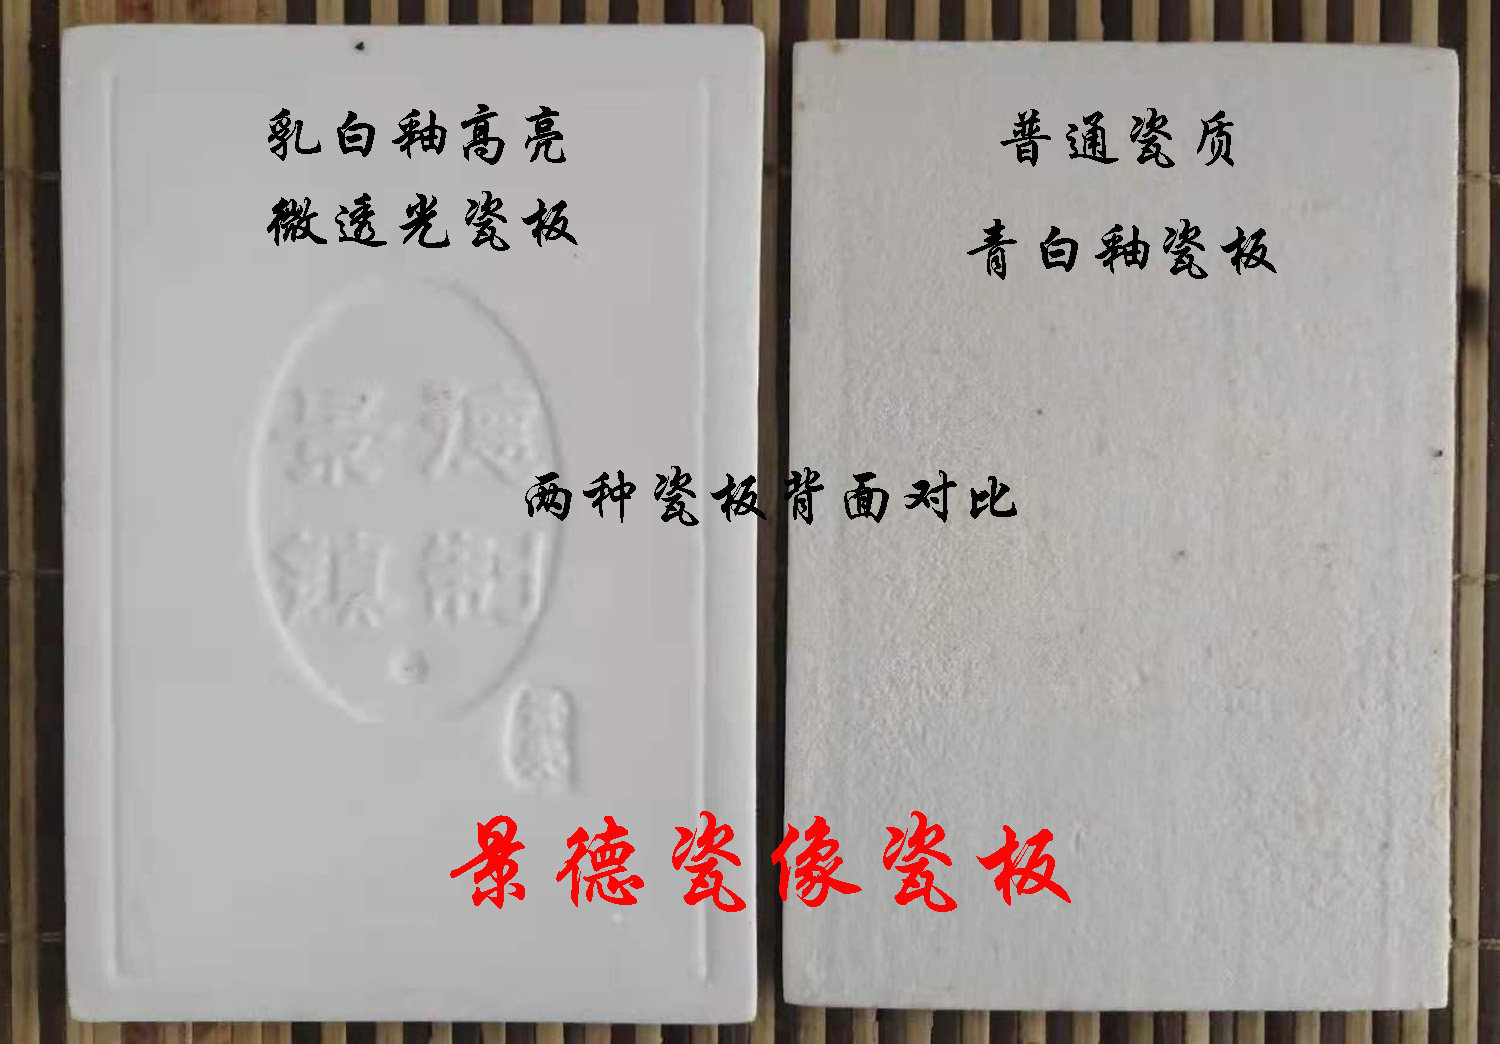 乳白釉高亮
微透光瓷板
普通瓷质
青白釉瓷板
两种瓷板背面对比
景德
镇制
景德瓷像瓷板